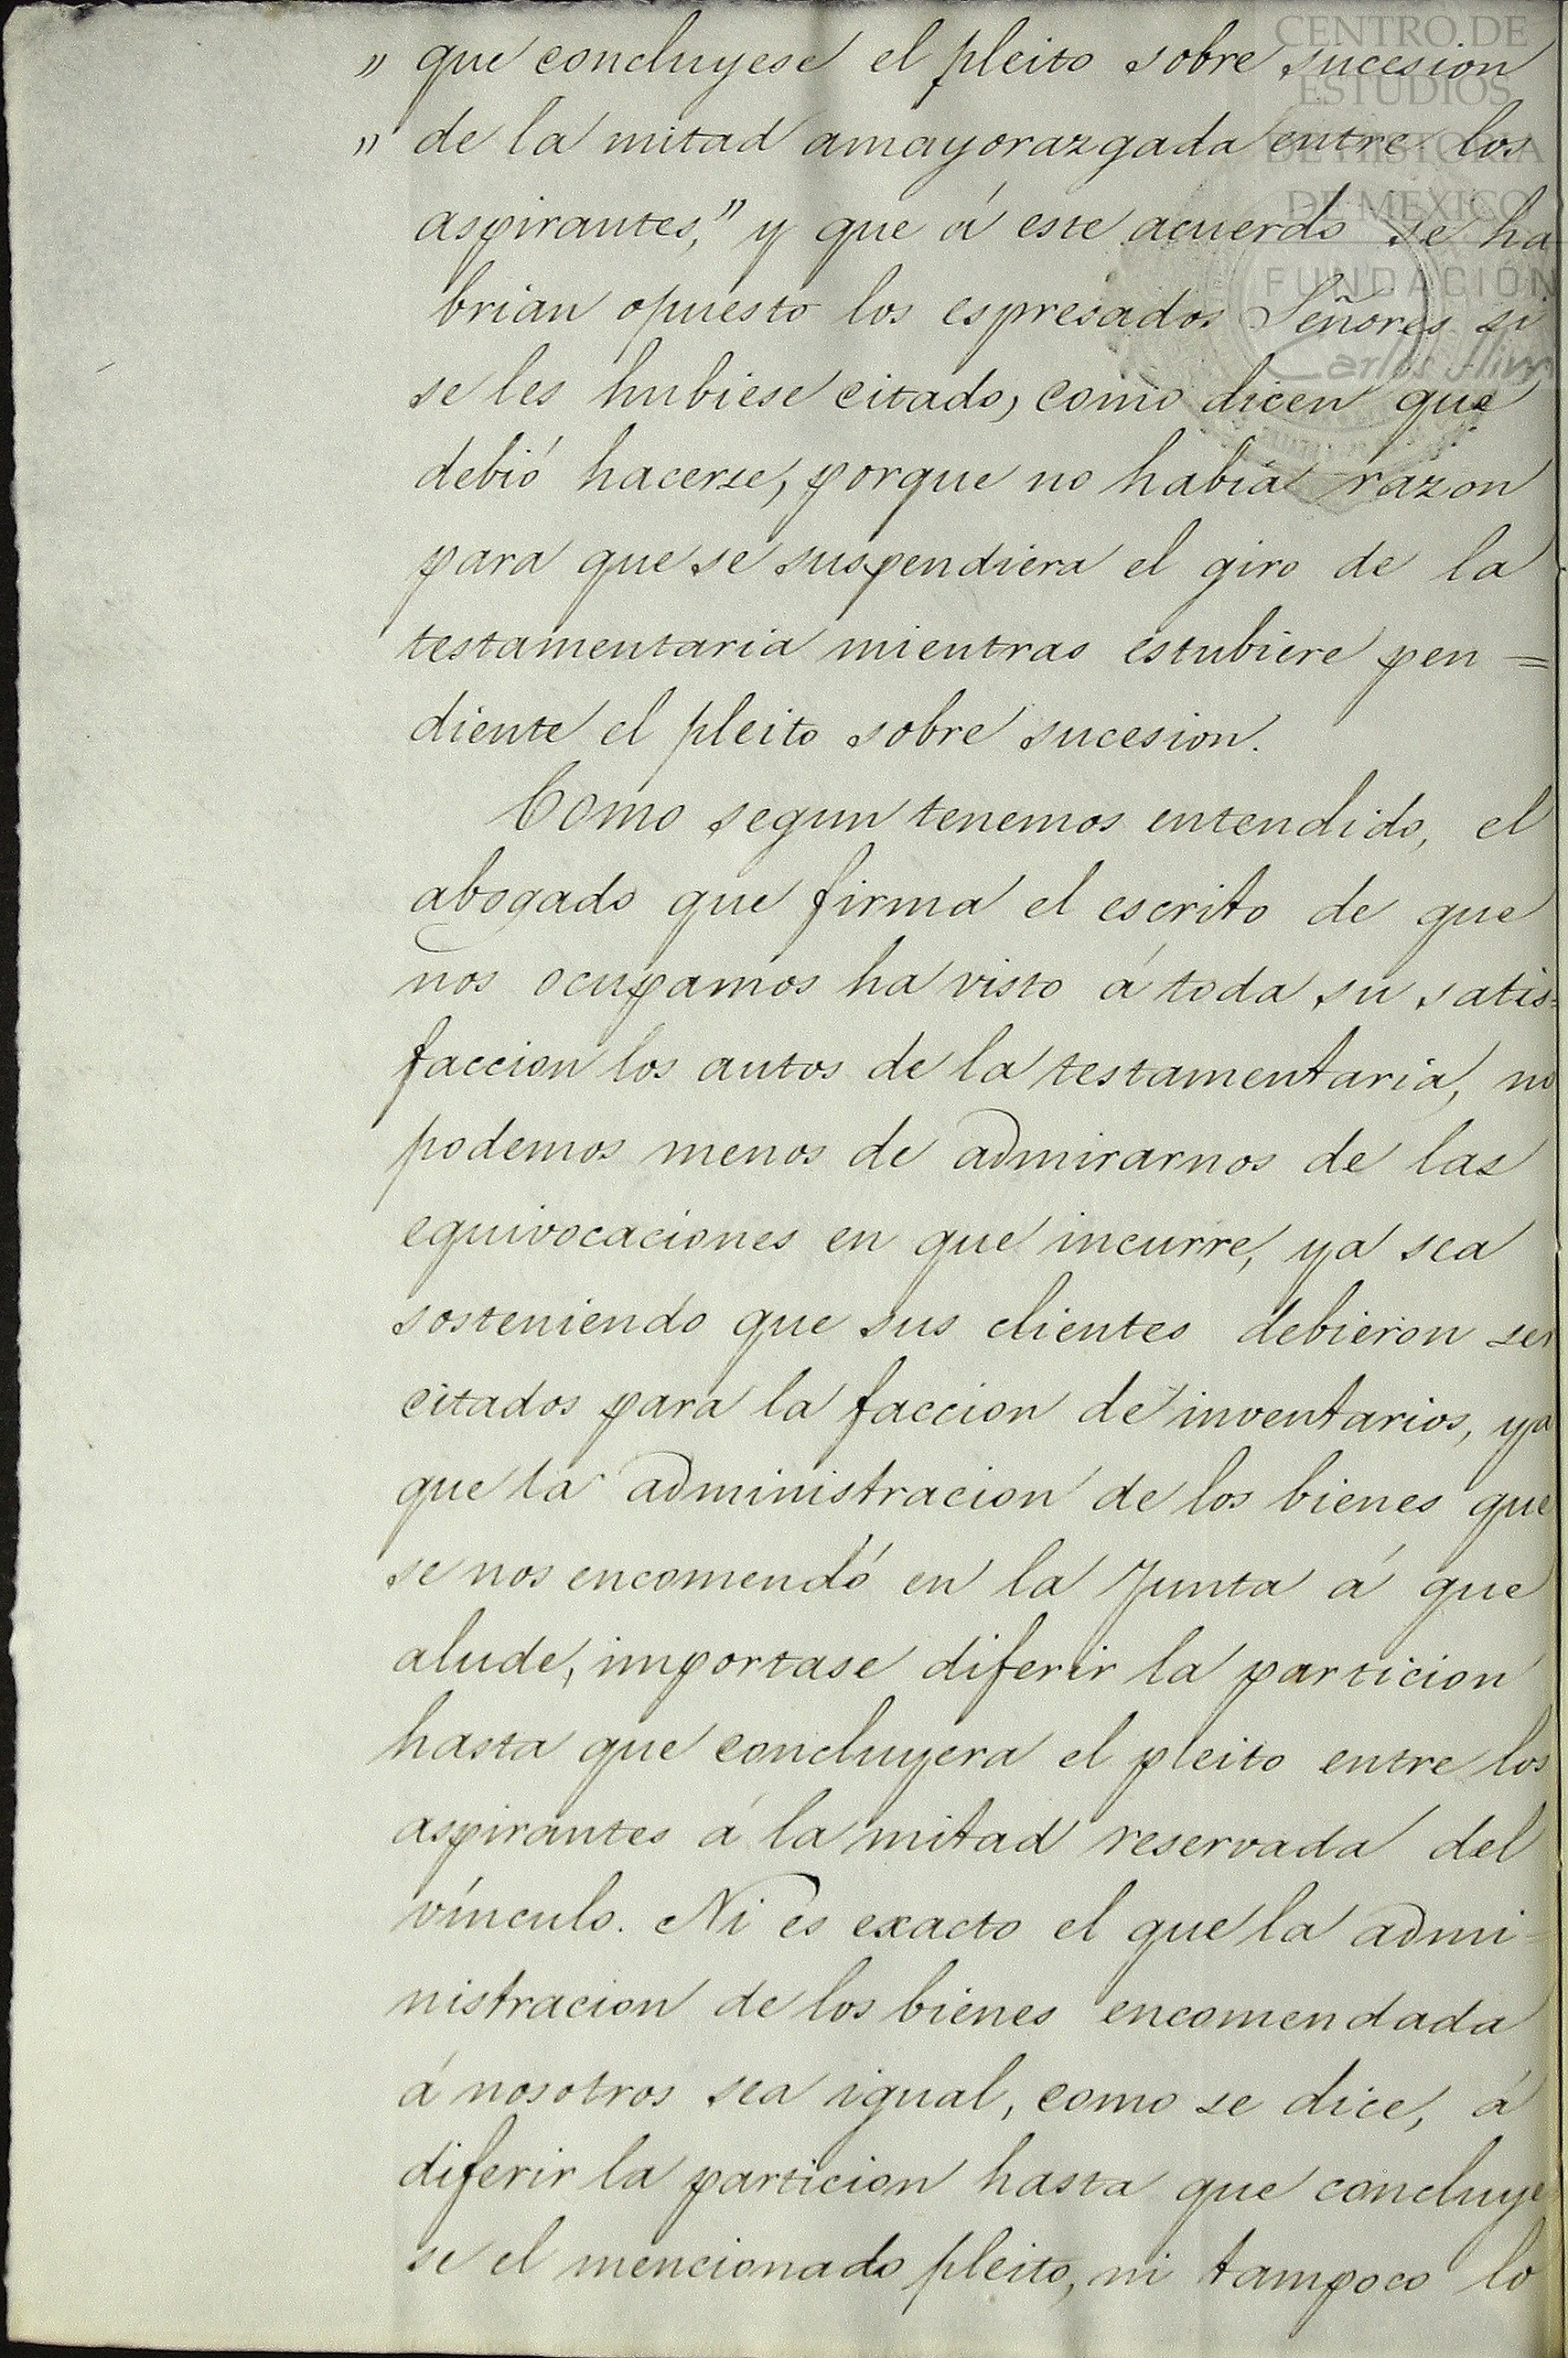 " que concluyese el pleito sobre sucesion
" de la mitad amayorazgada entre los
aspirantes," y que á este acuerdo se ha
brian opuesto los espresados Señores si
se les hubiese citado, como dicen que
debió hacerse, porque no había razon
para que se suspendiera el giro de la
testamentaria mientras estubiere pen=
diente el pleito sobre sucesion.
Como segun tenemos entendido, el
abogado que firma el escrito de que
nos ocupamos ha visto á toda su satis=
faccion los autos de la testamentaria, no
podemos menos de admirarnos de las
equivocaciones en que incurre, ya sea
sosteniendo que sus clientes debieron ser
citados para la faccion de inventarios, ya
que la administracion de los bienes que
se nos encomendó en la Junta á que
alude, importase diferir la particion
hasta que concluyera el pleito entre los
aspirantes á la mitad reservada del
vínculo. Ni es exacto el que la admi=
nistracion de los bienes encomendada
á nosotros sea igual, como se dice, á
diferir la particion hasta que concluye
se el mencionado pleito, ni tampoco lo
CENTRO DE
ESTUDIOS
DE HISTORIA
DE MEXICO
FUNDACIÓN
Carlos Slim